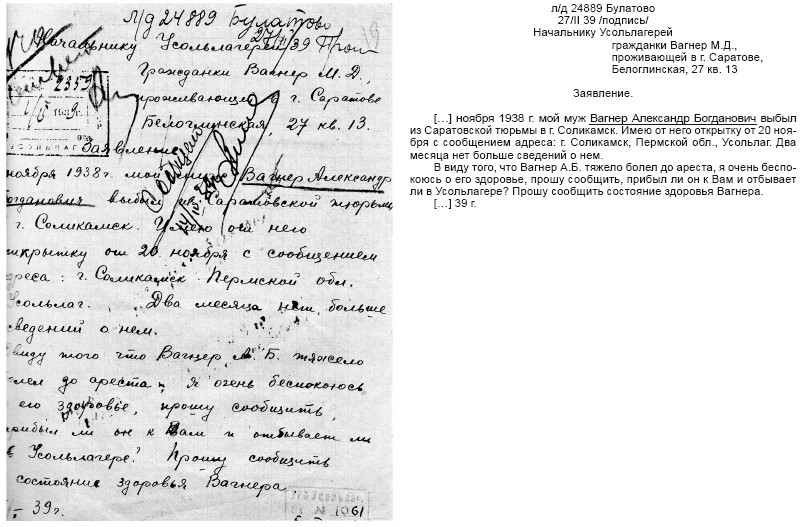 л/д 24889 Булатово
27/II 39
Начальнику Усольлагерей
Гражданки Вагнер М.Д.,
проживающей в г. Саратове
Белоглинская, 27 кв. 13.
2359
Заявление
ноября 1938г. мой муж Вагнер Александр
Богданович выбыл из Саратовской тюрьмы
г. Соликамск. Имею от него
открытку от 20 ноября с сообщением
адреса: г. Соликамск Пермской обл.
Усольлаг. Два месяца нет больше
сведений о нем.
виду того что Вагнер А.Б. тяжело
болел до ареста, я очень беспокоюсь
его здоровье, прошу сообщить,
прибыл ли он к Вам и отбывает ли
в Усольлагере? Прошу сообщить
состояние здоровья Вагнера
39г.
1061
л/д 24889 Булатово
27/II 39 /подпись/
Начальнику Усольлагерей
гражданки Вагнер М.Д.,
проживающей в г. Саратове,
Белоглинская, 27 кв. 13
Заявление.
[…] ноября 1938 г. мой муж Вагнер Александр Богданович выбыл
из Саратовской тюрьмы в г. Соликамск. Имею от него открытку от 20 ноя-
бря с сообщением адреса: г. Соликамск, Пермской обл., Усольлаг. Два
месяца нет больше сведений о нем.
В виду того, что Вагнер А.Б. тяжело болел до ареста, я очень беспо-
коюсь о его здоровье, прошу сообщить, прибыл ли он к Вам и отбывает
ли в Усольлагере? Прошу сообщить состояние здоровья Вагнера.
[…] 39 г.